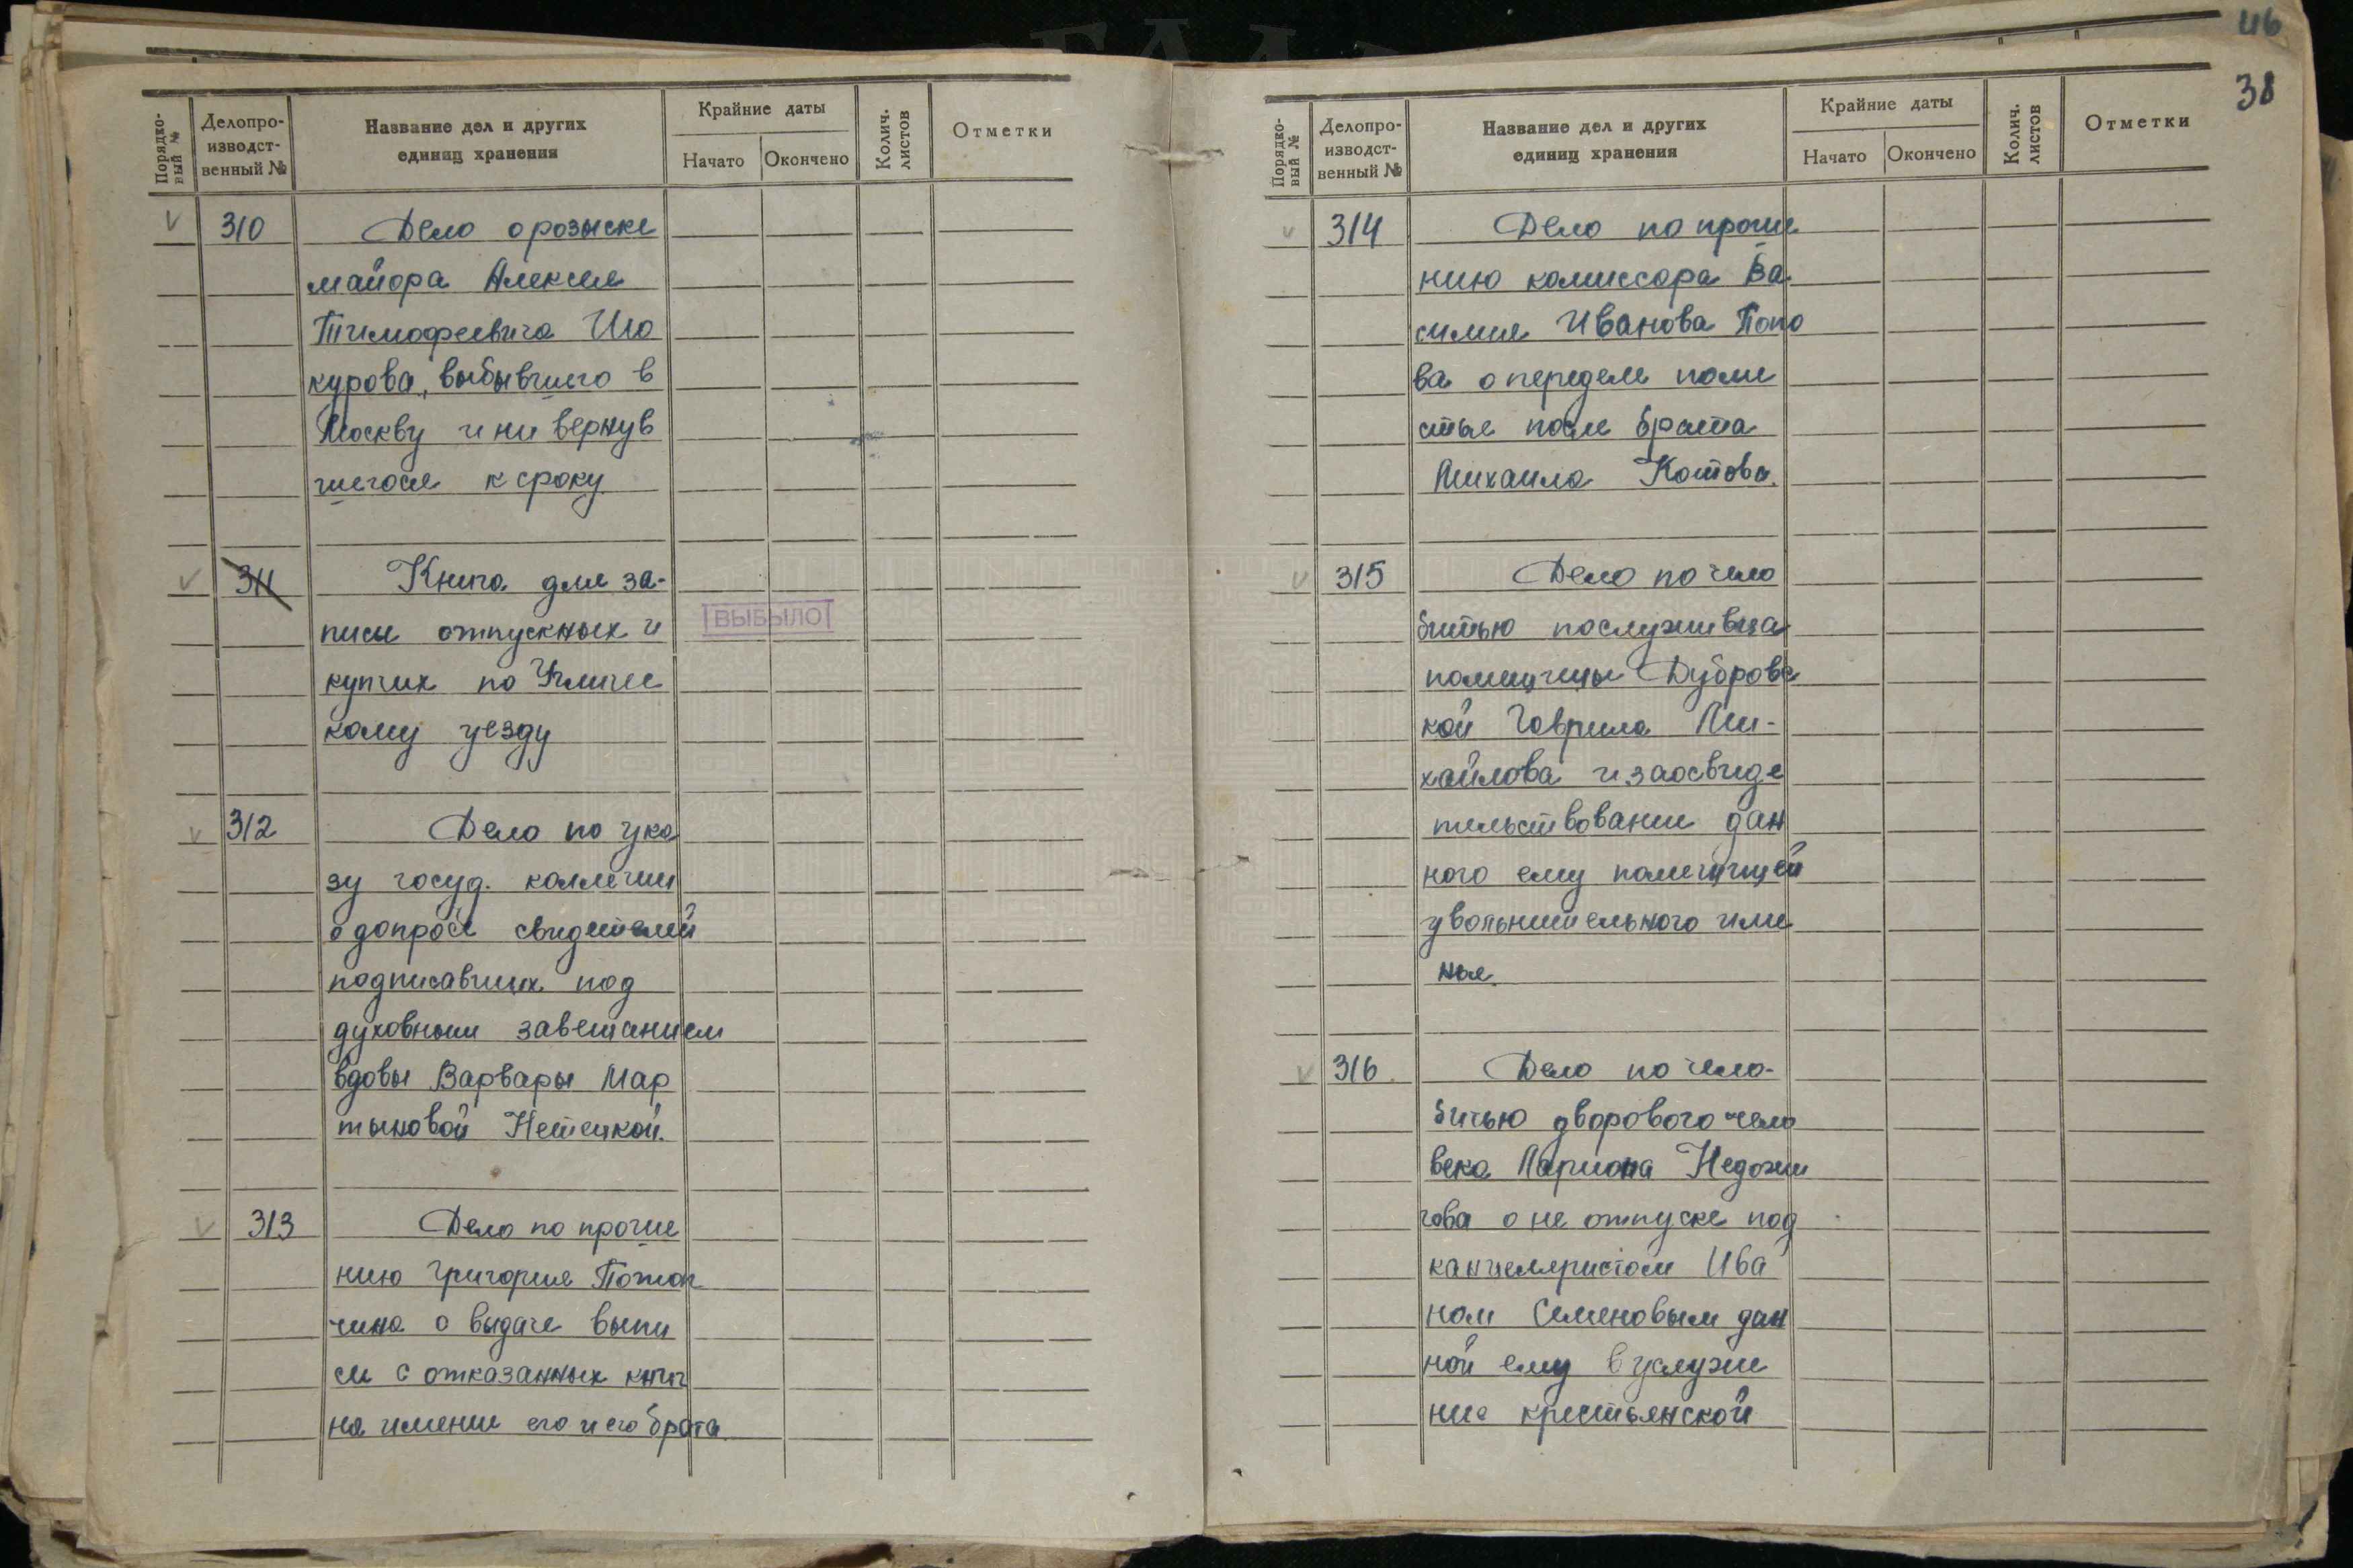 Порядко-
вый №
Делопро-
изводст-
венный №
Название дел и других
единиц хранения
Крайние даты
Начато
Окончено
Колич.
листов
Отметки
310
Дело о розыске
майора Алексея
Тимофеевича Шо
курова, выбывшего в
Москву и не вернув
шегося к сроку
311
Книга для за-
писи отпускных и
купчих по Угличс
кому уезду
ВЫБЫЛО
312
Дело по ука
зу госуд. коллегии
о допросе свидетелей
подписавших под
духовным завещанием
вдовы Варвары Мар
тыновой Нетецкой.
313
Дело по проше
нию Григория
чина о выдаче выпи
си с отказанных книг
на имение его и его брата
46
38
Порядко-
вый №
Делопро-
изводст-
венный №
Название дел и других
единиц хранения
Крайние даты
Начато
Окончено
Колич.
листов
Отметки
314
Дело по проше
нию комиссара Ва
силия Иванова Попо
ва о переделе поме
стья после брата
Михаила Котова.
315
Дело по чело
битью послуживца
помещицы Дубровс
кой Гаврила Ми-
хайлова и заосвиде
тельствовании дан
ного ему помещицей
увольнительного име
нья.
316.
Дело по чело-
битью дворового чело
века Лариона Недожи
гова о не отпуске под
канцеляристом Ива
ном Семеновым дан
ной ему в услуже
ние крестьянской